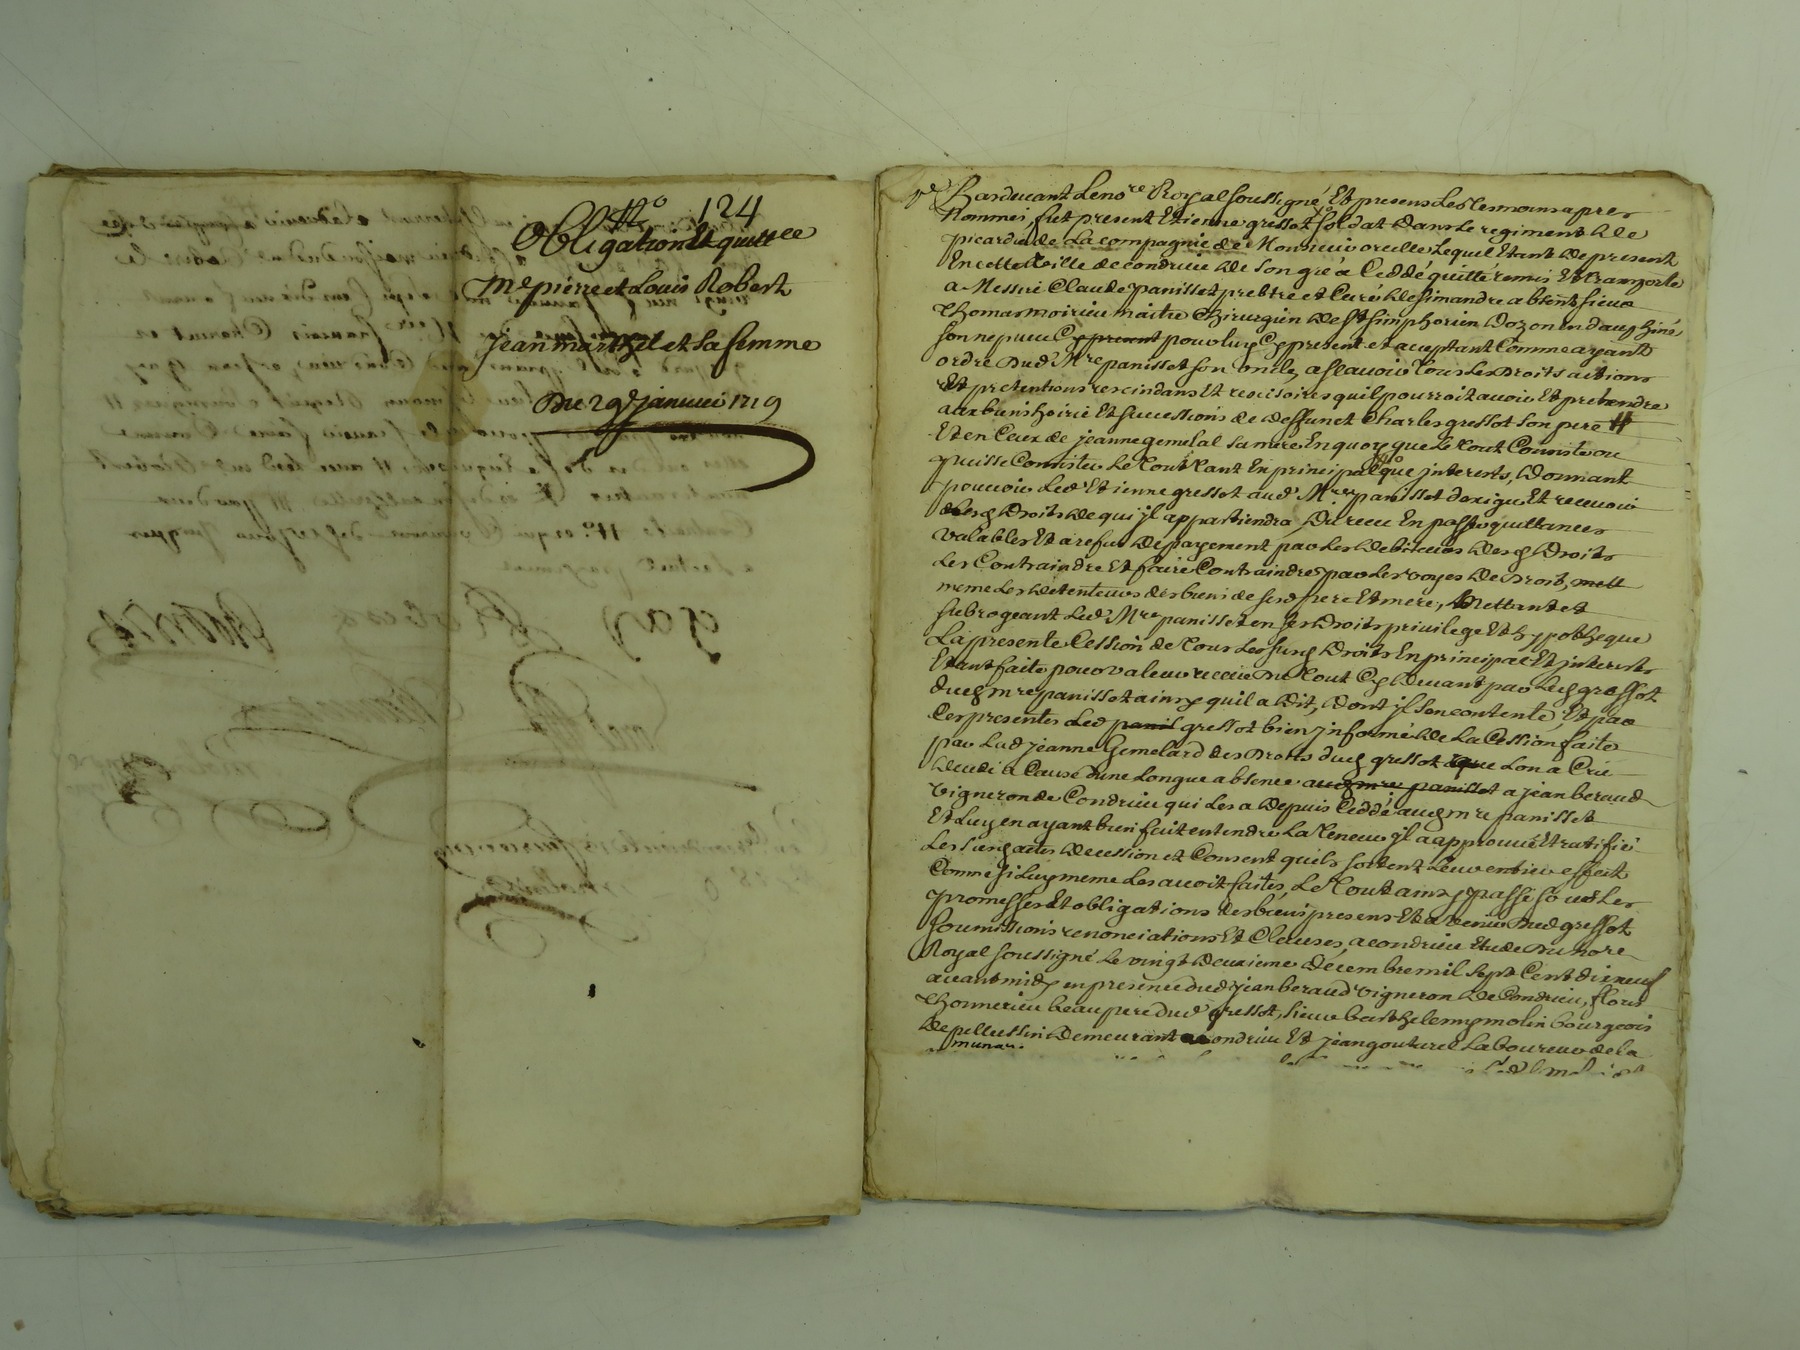 N.° 124
Obligation Et quittce
Me pierre et Louis Robert
Jean marthel et sa femme
Du 29e januier 1719
Pardeuant Le nore Royal soussigné, Et presens Les tesmoins apres
Nommés, fut present Etienne gressot soldat dans Le regiment de
picardie de La compagnie de Monsieur oreille, Lequel Etant de present
En cette Ville de condrieu de son gré a Ceddé quitté remis Et transporté
a Messire Claude panisset prebtre et Curé de simandre absent sieur
Thomas moirieu maitre Chirurgien de st simphorien dozon en dauphiné
son nepueu Cy present pour luy Cy present et acceptant Comme ayant
ordre Dud Mre panisset son oncle, a scauoir tous Les Droits actions
Et pretentions rescindans Et rescisoires quil pourroit auoir Et pretendre
aux biens hoirie Et successions de deffunct Charles gressot son pere #
Et en Ceux de jeanne gemelal sa mere En quoy que Le tout Consiste ou
puisse Consister Le tout tant En principal que jnterests, donnant
pouuoir Led Etienne gressot aud Mre panisset dexiger Et receuoir
Lesd Droits de qui jl appartiendra, Du receu En passer quittances
valables Et a refus de payement par Les debiteurs desd Droits
Les Contraindre Et faire Contraindre par Les voyes de Droit, mett
meme Les detenteurs des biens de sesd pere Et mere, Mettant et
subrogeant Led Mre panisset en ses Droits priuilege Et hypotheque
La presente Cession de tous Les susd Droits En principal Et jnterests
Etant faite pour valeur receue Du tout Cy deuant par Led gressot
dud mre panisset ainsy quil a dit, dont jl sen contente, Et par
Ces presentes Led panil gressot bien jnformé de La Cession faite
par Lad jeanne Gemelard des Droits dud gressot que Lon a Crû
decedé a Cause dune Longue absence aud mre panisset a jean beraud
vigneron de Condrieu qui Les a depuis Ceddé aud mre panisset
Et Luy en ayant bien fait entendre La teneur jl a approuué Et ratifié
Les susd actes de cession et Consent quils sortent Leur entier effect
Comme si Luy meme Les auoit faites, Le tout ainsy passé sous Les
promesses Et obligations des biens presens Et a venir Dud gressot
soumissions renonciations Et Clauses, a condrieu Etude Du nore
Royal soussigné Le vingt deuxieme décembre mil sept Cent dixneuf
auant midy en presence dud jean beraud vigneron de Condrieu, flory
Thomerieu beau pere dud gressot, sieur barthelemy molin bourgeois
de pellussin demeurant a condrieu Et jean gouturel Laboureur de la